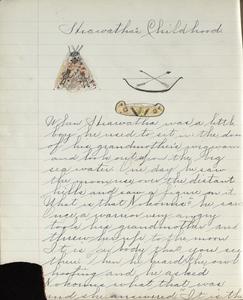 Hiawatha's Childhood
When Hiawatha was a little
boy he used to sit in the door
of his grandmother's wigwam
and look out on the big
sea water. One day he saw
the moon rise over the distant
hills and saw a figure on it.
What is that Nokomis" he said
Once a warrior very angry
took his grandmother and
threw her up to the moon
It is her body that you see
there. Then he heard the owl
hooting and he asked
Nokomis what that was
and she answered "It is the